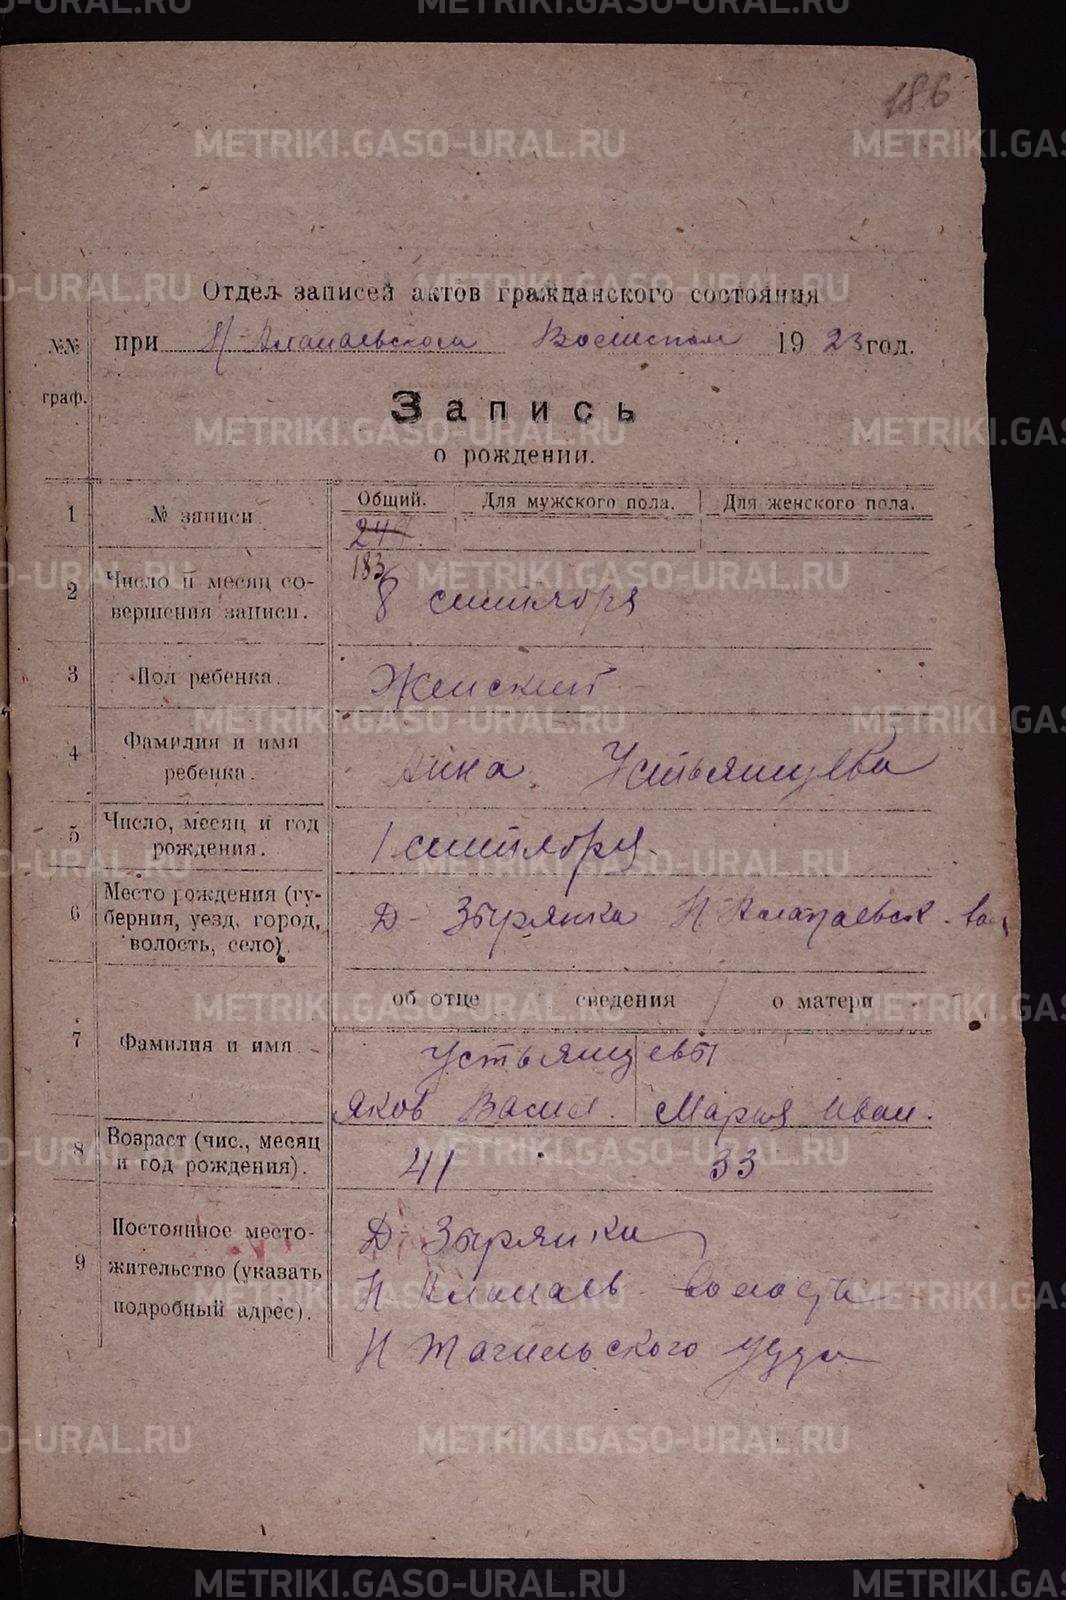 186
Отдел записей актов гражданского состояния
№№ граф.
при Н-Алапаевском Волисполком 1923 год.
Запись
о рождении.
Общий. Для мужского пола. Для женского пола.
1 № записи 
183
2 Число и месяц со-
вершения записи. 8 сентября
3 Пол ребенка. Женский
4 Фамилия и имя
ребенка. Анна Устьянцева
5 Число, месяц и год
рождения. 1 сентября
6 Место рождения (гу-
берния, уезд, город,
волость, село). Д- Зырянка Н Алапаевск. вол
об отце сведения о матери
7 Фамилия и имя Устьянцевы
Яков Васил. Мария Иван.
8 Возраст (чис., месяц
и год рождения). 41 33
9 Постоянное место-
жительство (указать
подробный адрес). Д- Зырянка
Н Алапаев. волость
Н Тагильского уезда
METRIKI.GASO-URAL.RU